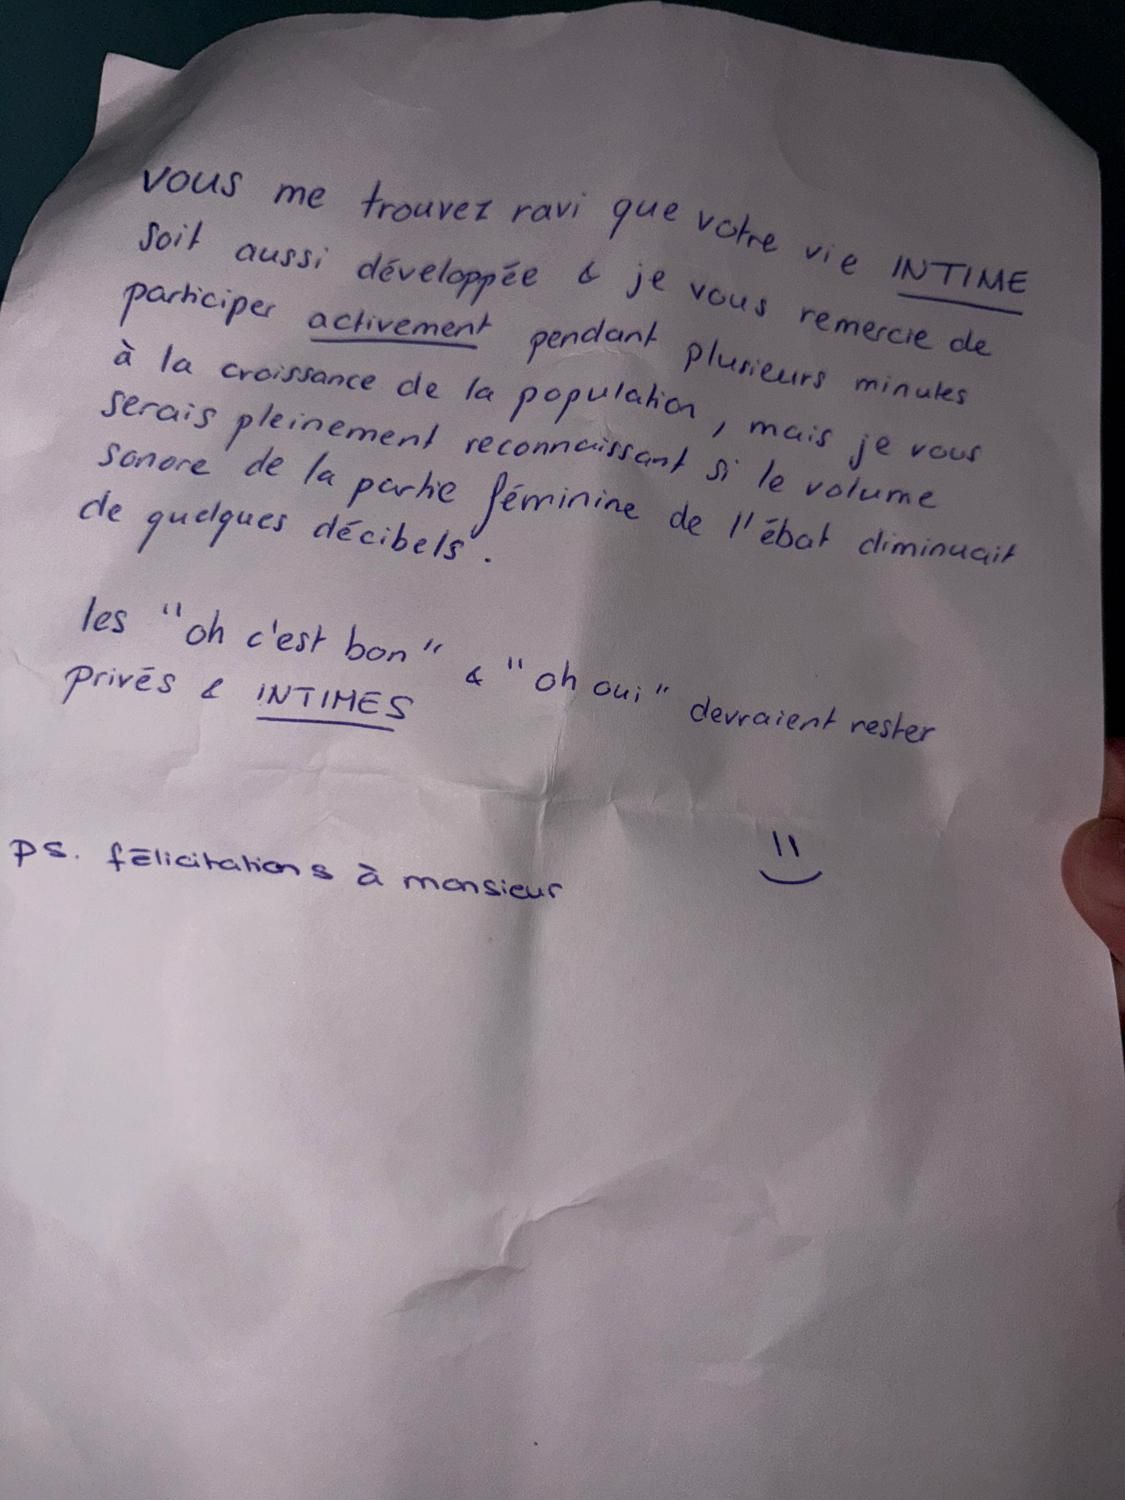 vous me trouvez ravi que votre vie INTIME
soit aussi développée & je vous remercie de
participer activement pendant plusieurs minutes
à la croissance de la population, mais je vous
serais pleinement reconnaissant si le volume
sonore de la partie féminine de l'ébat diminuait
de quelques décibels.
les "oh c'est bon" & "oh oui" devraient rester
privés & INTIMES
PS. félicitations à monsieur